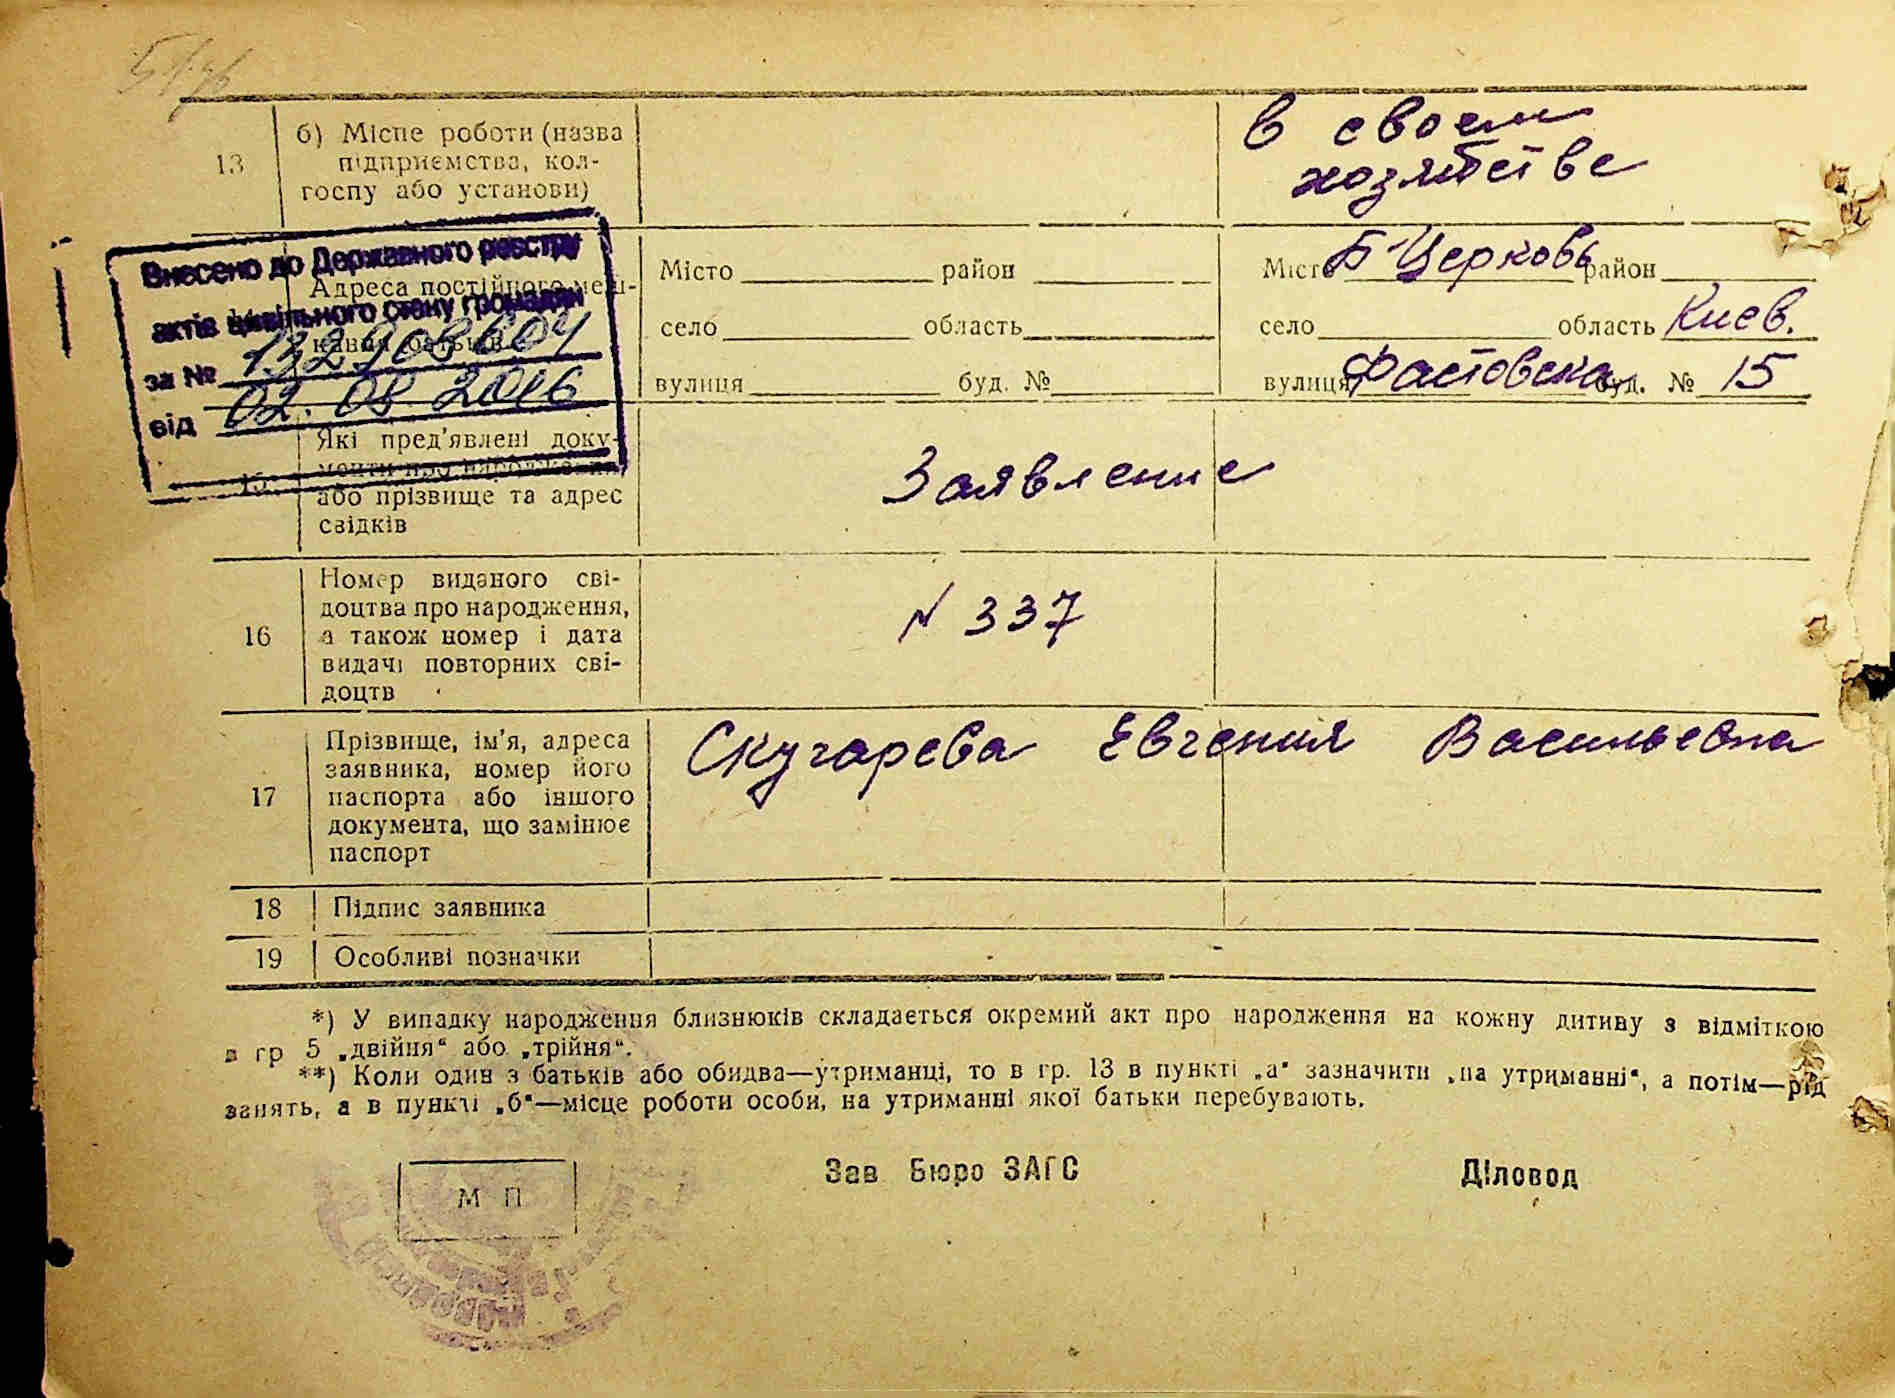 13
б) Місце роботи (назва
підприємства, кол-
госпу або установи)
в своем
хозяйстве
Внесено до Державного реєстру
актів цивільного стану громадян
за № 132908604
від 02.08 2016
Адреса постійного меш-
кання батьків
Місто район
село область
вулиця буд. №
Місто Б-Церковь район
село область Киев.
вулиця Фастовска буд. № 15
15
Які пред'явлені доку-
менти про народження
або прізвище та адрес
свідків
Заявление
16
Номер виданого сві-
доцтва про народження,
а також номер і дата
видачі повторних сві-
доцтв
N 337
17
Прізвище, ім'я, адреса
заявника, номер його
паспорта або іншого
документа, що замінює
паспорт
Скугарева Евгения Васильевна
18 Підпис заявника
19 Особливі позначки
*) У випадку народження близнюків складається окремий акт про народження на кожну дитину з відміткою
в гр 5 „двійня“ або „трійня“.
**) Коли один з батьків або обидва—утриманці, то в гр. 13 в пункті „а“ зазначити „на утриманні“, а потім—рід
занять, а в пункті „б“—місце роботи особи, на утриманні якої батьки перебувають.
М П
Зав Бюро ЗАГС
Діловод